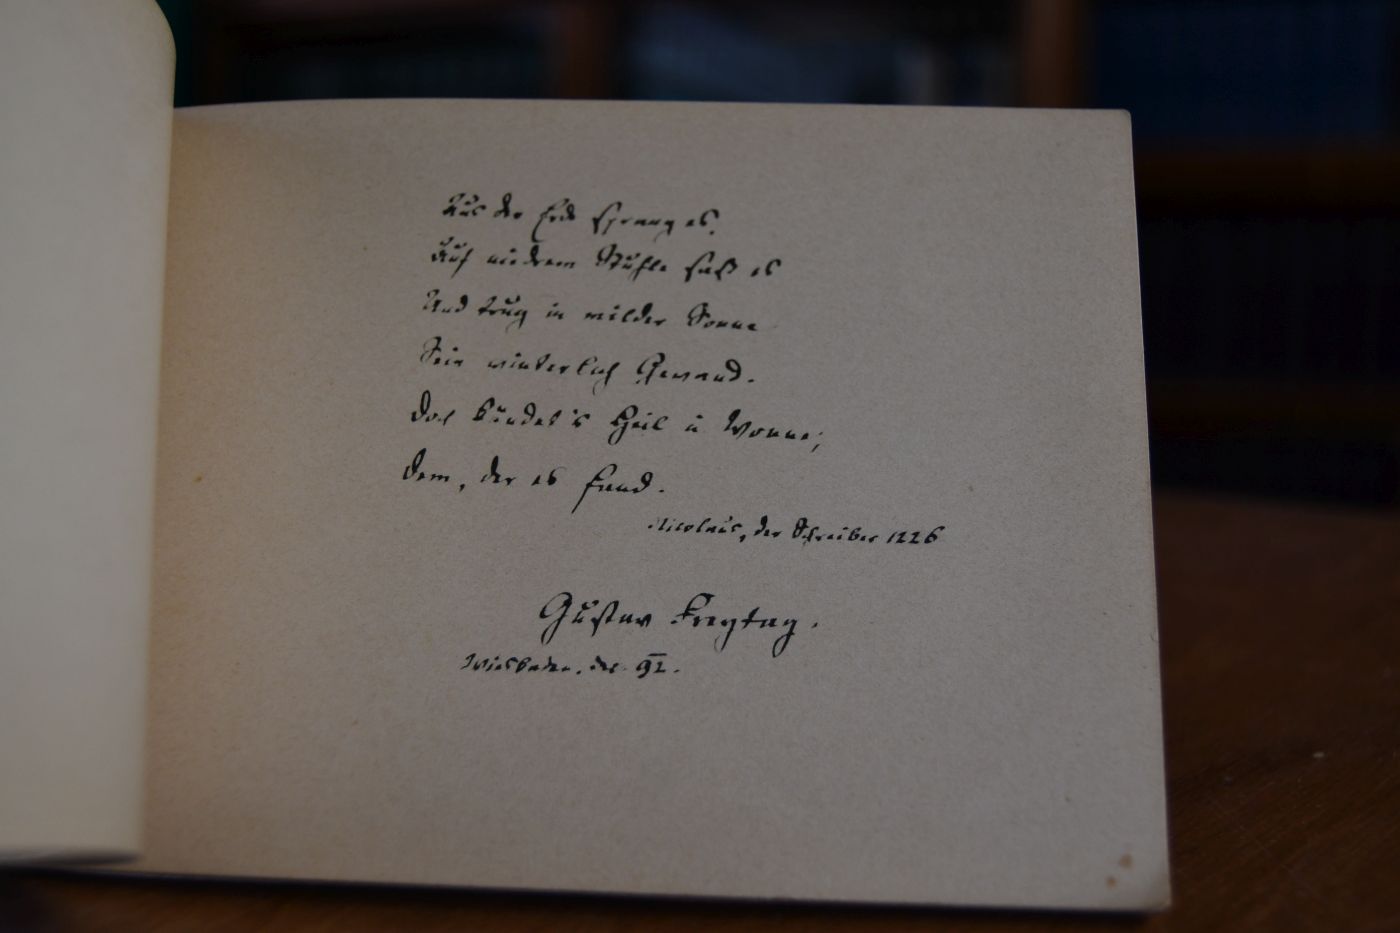 Aus der Erde sprang es.
Auf niedrem Stuhle saß es
Und trug in milder Sonne
Sein winterlich Gewand.
Doch kündet's Heil u Wonne;
Dem, der es fand.
Nicolaus, der Schreiber 1226
Gustav Freytag.
Wiesbaden. dec. 92.